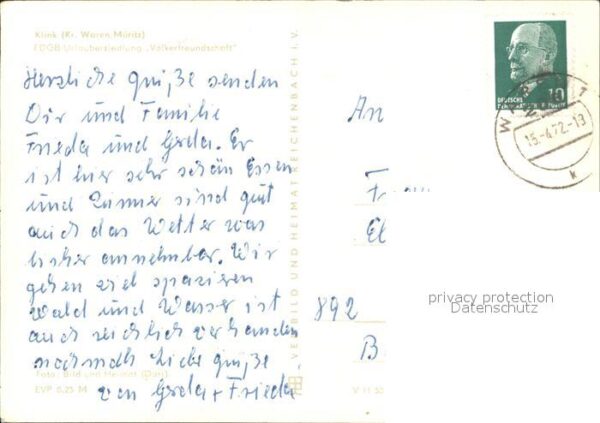 Klink (Kr. Waren Müritz)
FDGB-Urlaubersiedlung „Völkerfreundschaft“
Herzliche grüße senden
Dir und Familie
Frieda und Gerda. Er
ist hier sehr schön Essen
und Zimmer sind gut
auch das Wetter war
bisher annehmbar. Wir
gehen viel spazieren
Wald und Wasser ist
auch reichlich vorhanden
nochmals Liebe grüße
von Gerda + Frieda
Foto: Bild und Heimat
EVP 0,25 M
VEB BILD UND HEIMAT REICHENBACH I. V.
V 11 50
An
892
B
10
DEUTSCHE
15.-4.72.-13
k
privacy protection
Datenschutz